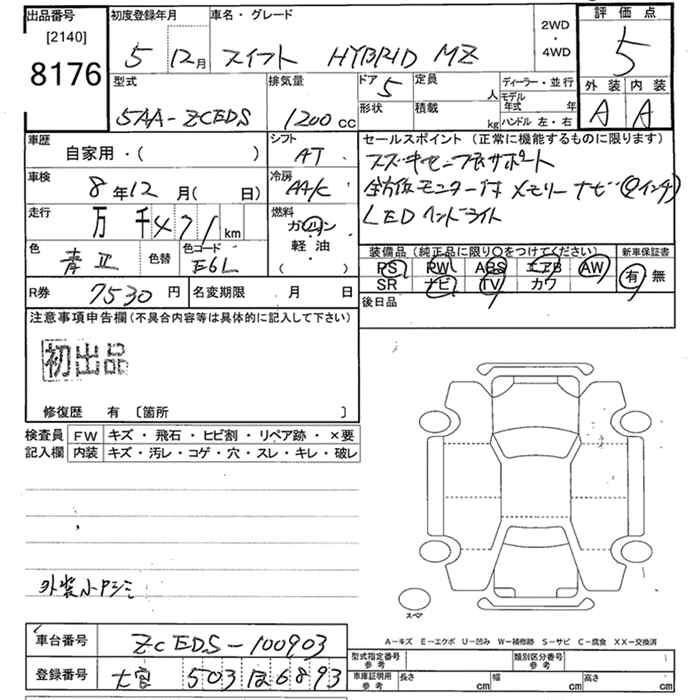 出品番号
[2140]
8176
初度登録年月
5 12月
車名・グレード
スイフト HYBRID MZ
2WD
・
4WD
評価点
5
外装 内装
A A
型式
5AA-ZCEDS
排気量
1200 cc
ドア 5
形状
定員 人
積載 kg
ディーラー・並行
モデル年式 年
ハンドル 左・右
車歴
自家用・( )
シフト
AT
セールスポイント (正常に機能するものに限ります)
スズキセーフティサポート
全方位モニター付 メモリーナビ(9インチ)
LEDヘッドライト
車検
8年12月( 日)
冷房
AA/C
走行
万 千471 km
燃料
ガソリン
・
軽油
( )
色
青
色替
色コード
E6L
装備品 (純正品に限り○をつけてください)
新車保証書
PS PW ABS エアB AW
SR ナビ TV カワ
有 無
R券 7530円
名変期限 月 日
後日品
注意事項申告欄 (不具合内容等は具体的に記入して下さい)
初出品
修復歴 有 〔箇所 〕
検査員
記入欄
FW キズ・飛石・ヒビ割・リペア跡・×要
内装 キズ・汚レ・コゲ・穴・スレ・キレ・破レ
外装小キズシミ
スペア
A−キズ E−エクボ U−凹み W−補修跡 S−サビ C−腐食 XX−交換済
車台番号 ZCEDS-100903
登録番号 大宮 503 ほ 6893
型式指定番号
参考
類別区分番号
参考
車庫証明用
参考
長さ cm 幅 cm 高さ cm